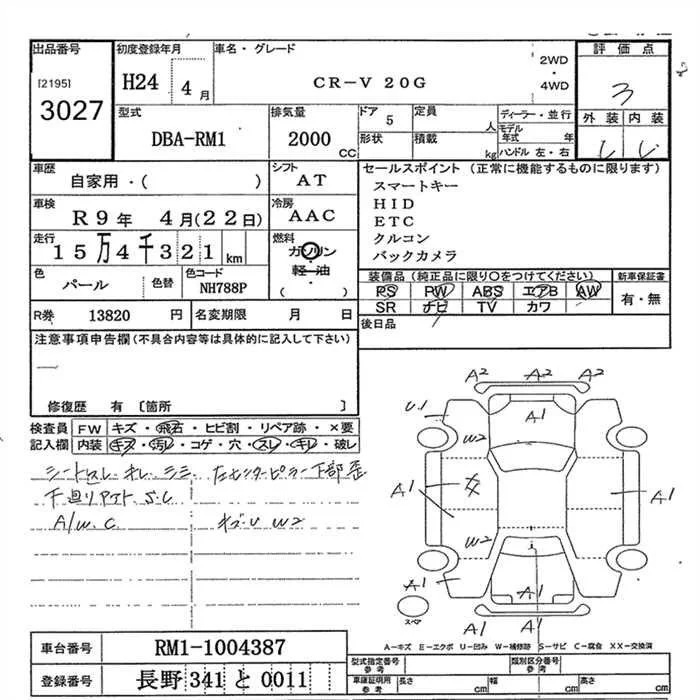 出品番号 初度登録年月 車名・グレード 評価点
[2195] 3027 H24 4月 CR-V 20G 2WD・4WD 3
外装 内装
型式 DBA-RM1 排気量 2000 CC ドア 5 定員 人 ディーラー・並行
形状 積載 kg モデル年式 年
ハンドル 左・右
車歴 自家用・( ) シフト AT セールスポイント (正常に機能するものに限ります)
スマートキー
車検 R9年 4月(22日) 冷房 AAC HID
ETC
走行 15万4千321km 燃料 ガソリン・軽油 ( ) クルコン
バックカメラ
色 パール 色替 色コード NH788P 装備品 (純正品に限り○をつけてください) 新車保証書
PS PW ABS エアB AW 有・無
SR ナビ TV カワ
R券 13820 円 名変期限 月 日 後日品
注意事項申告欄 (不具合内容等は具体的に記入して下さい)
修復歴 有 〔箇所 〕
検査員 FW キズ・飛石・ヒビ割・リペア跡・×要
記入欄 内装 キズ・汚レ・コゲ・穴・スレ・キレ・破レ
シートスレ オレ シミ 左センターピラー下部歪
下廻リアスト S.C
A/W C キズU W2
A2 A2 A2
U1 A1
W2
A1 女 A1
W2
A1 A1
A1 A1
スペア
A-キズ E-エクボ U-凹み W-補修跡 S-サビ C-腐食 XX-交換済
車台番号 RM1-1004387 型式指定番号 参考 類別区分番号 参考
登録番号 長野 341 と 0011 車庫証明用 参考 長さ cm 幅 cm 高さ cm